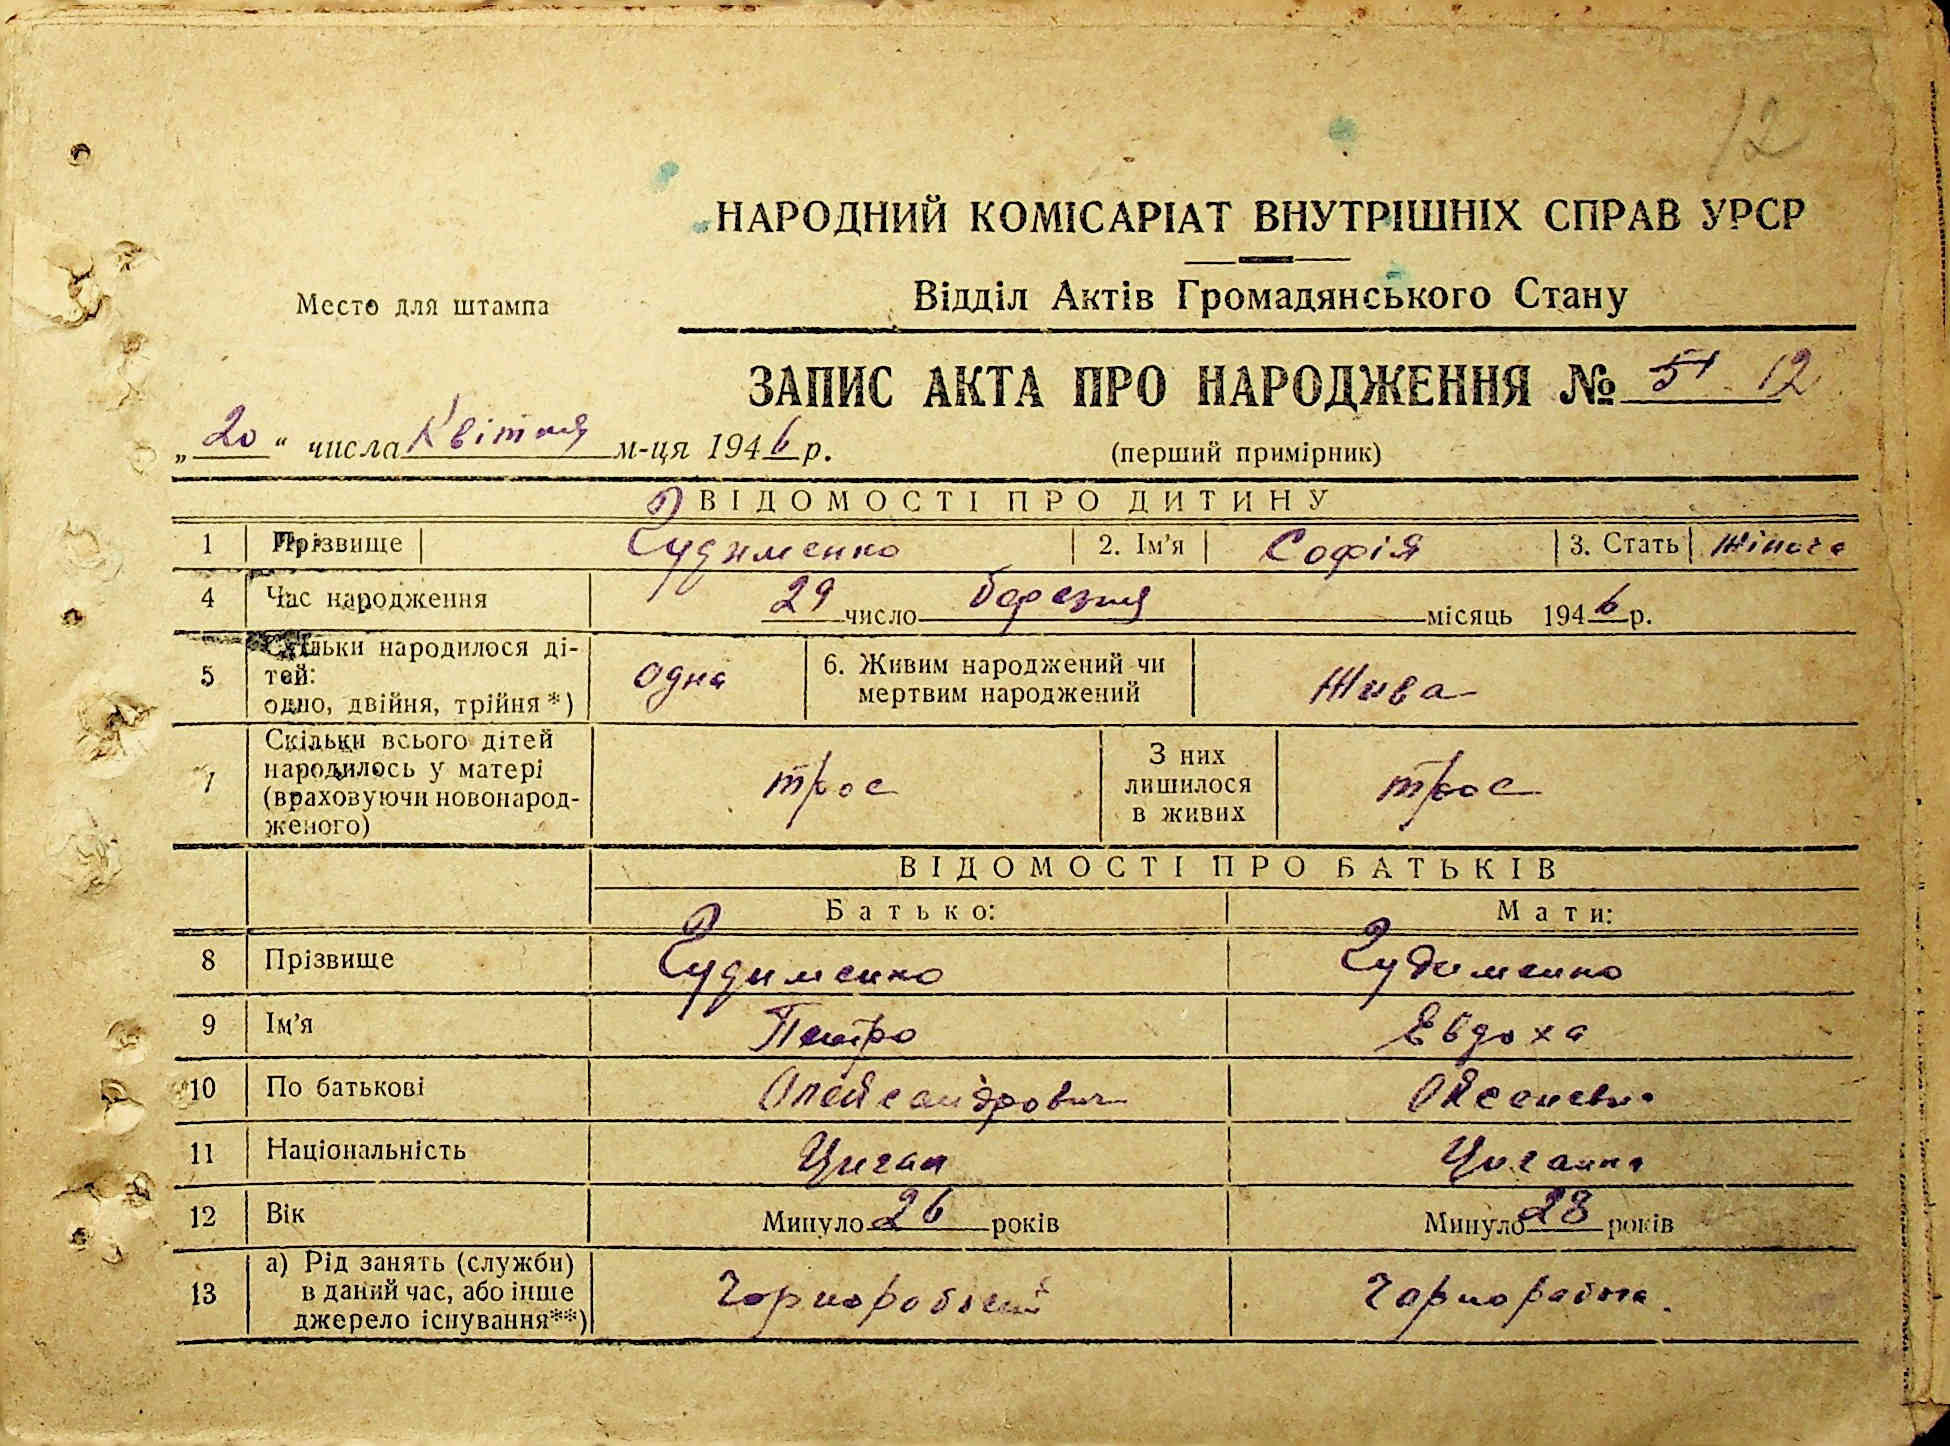 12
НАРОДНИЙ КОМІСАРІАТ ВНУТРІШНІХ СПРАВ УРСР
Место для штампа
Відділ Актів Громадянського Стану
ЗАПИС АКТА ПРО НАРОДЖЕННЯ № 51 12
„20“ числа Квітня м-ця 1946 р.
(перший примірник)
ВІДОМОСТІ ПРО ДИТИНУ
1 Прізвище Чудименко 2. Ім'я Софія 3. Стать Жіноча
4 Час народження 29 число березня місяць 1946 р.
5 Скільки народилося ді-
тей:
одно, двійня, трійня*) одна 6. Живим народжений чи
мертвим народжений Жива
7 Скільки всього дітей
народилось у матері
(враховуючи новонарод-
женого) троє З них
лишилося
в живих троє
ВІДОМОСТІ ПРО БАТЬКІВ
Батько: Мати:
8 Прізвище Чудименко Чудименко
9 Ім'я Петро Евдоха
10 По батькові Олександрович
11 Національність Циган Циганка
12 Вік Минуло 26 років Минуло 28 років
13 а) Рід занять (служби)
в даний час, або інше
джерело існування**) Чорноробочий Чорноробоча